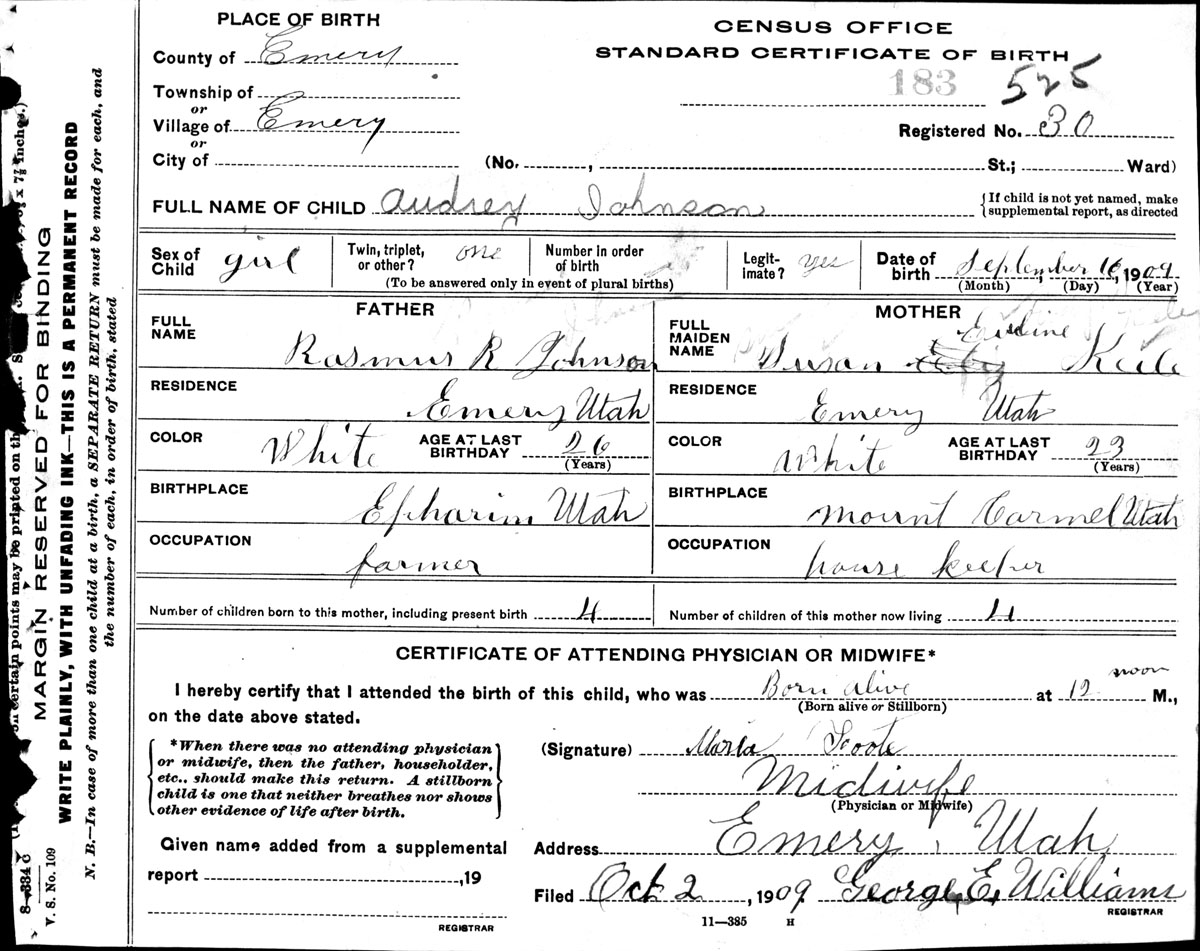 PLACE OF BIRTH
County of Emery
Township of
or
Village of Emery
or
City of
CENSUS OFFICE
STANDARD CERTIFICATE OF BIRTH
183 525
Registered No. 30
(No. , St.; Ward)
FULL NAME OF CHILD Audrey Johnson
{If child is not yet named, make
supplemental report, as directed
Sex of Child girl
Twin, triplet, or other? one
Number in order of birth
(To be answered only in event of plural births)
Legitimate? yes
Date of birth September 16, 1909
(Month) (Day) (Year)
FATHER
FULL NAME Rasmus R Johnson
RESIDENCE Emery Utah
COLOR White AGE AT LAST BIRTHDAY 26
(Years)
BIRTHPLACE Epharim Utah
OCCUPATION farmer
MOTHER
FULL MAIDEN NAME Susan
RESIDENCE Emery Utah
COLOR White AGE AT LAST BIRTHDAY 23
(Years)
BIRTHPLACE Mount Carmel Utah
OCCUPATION house keeper
Number of children born to this mother, including present birth 4
Number of children of this mother now living 4
CERTIFICATE OF ATTENDING PHYSICIAN OR MIDWIFE*
I hereby certify that I attended the birth of this child, who was Born alive at 12 noon M.,
(Born alive or Stillborn)
on the date above stated.
{*When there was no attending physician
or midwife, then the father, householder,
etc., should make this return. A stillborn
child is one that neither breathes nor shows
other evidence of life after birth.}
(Signature) Maria Foote
Midiwfe
(Physician or Midwife)
Given name added from a supplemental
report ,19
REGISTRAR
Address Emery, Utah
Filed Oct 2, 1909 George E. Williams
REGISTRAR
11—385 H
on certain points may be printed on
x 7⅞ inches.)
MARGIN RESERVED FOR BINDING
WRITE PLAINLY, WITH UNFADING INK—THIS IS A PERMANENT RECORD
N. B.—In case of more than one child at a birth, a SEPARATE RETURN must be made for each, and
the number of each, in order of birth, stated
8—334 C
V. S. No. 109